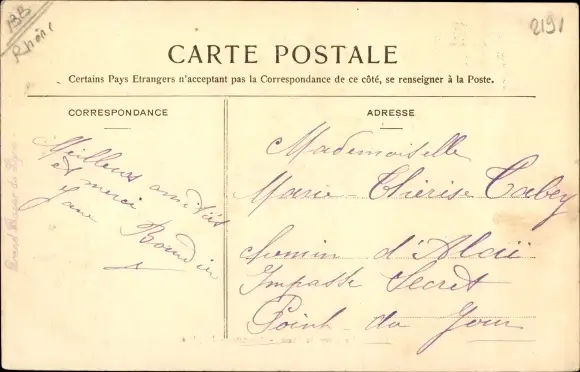 BB
Rhône
2191
CARTE POSTALE
Certains Pays Etrangers n'acceptant pas la Correspondance de ce côté, se renseigner à la Poste.
CORRESPONDANCE
ADRESSE
Meilleures amitiés
et merci
Jane Bourdin
Mademoiselle
Marie-Thérèse Cabey
Chemin d'Alaï
Impasse Secret
Point-du Jour